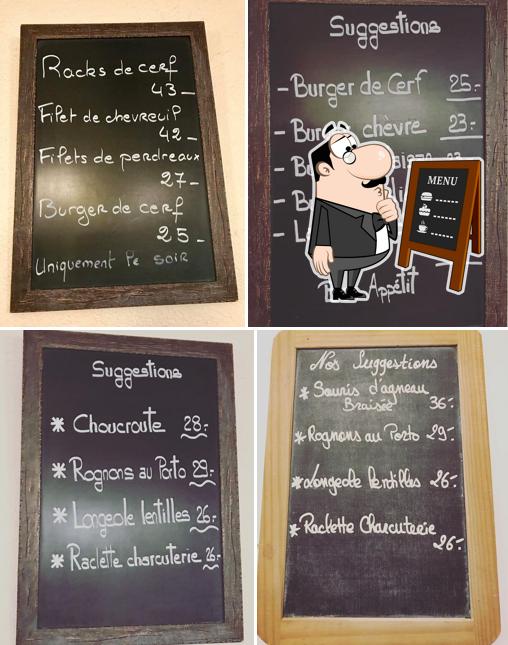 Racks de cerf
43_
Filet de chevreuil
42_
Filets de perdreaux
27-
Burger de cerf
25-
Uniquement le soir
Suggestions
- Burger de Cerf 25.-
- chèvre 23.-
MENU
Appétit
Suggestions
* Choucroute 28.-
* Rognons au Porto 29.-
* Longeole lentilles 26.-
* Raclette charcuterie 26.-
Nos Suggestions
* Souris d'agneau
Braisée 36.-
* Rognons au Porto 29.-
* Longeole lentilles 26.-
* Raclette Charcuterie
26.-